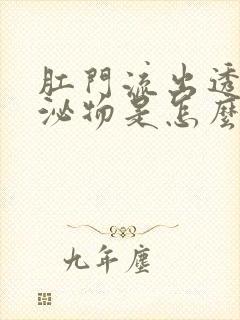 肛門流出透
泌物是怎麼
九年塵